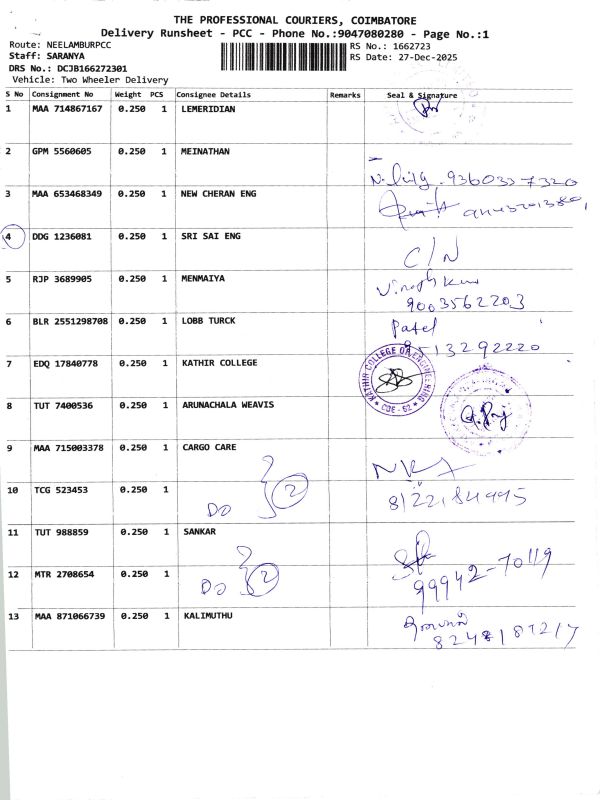 THE PROFESSIONAL COURIERS, COIMBATORE
Delivery Runsheet - PCC - Phone No.:9047080280 - Page No.:1
Route: NEELAMBURPCC
Staff: SARANYA
DRS No.: DCJB166272301
Vehicle: Two Wheeler Delivery
RS No.: 1662723
RS Date: 27-Dec-2025
S No Consignment No Weight PCS Consignee Details Remarks Seal & Signature
1 MAA 714867167 0.250 1 LEMERIDIAN
2 GPM 5560605 0.250 1 MEINATHAN
9360337320
3 MAA 653468349 0.250 1 NEW CHERAN ENG
4 DDG 1236081 0.250 1 SRI SAI ENG
C/N
5 RJP 3689905 0.250 1 MENMAIYA
9003562203
6 BLR 2551298708 0.250 1 LOBB TURCK
Patel
9513292220
7 EDQ 17840778 0.250 1 KATHIR COLLEGE
KATHIR COLLEGE OF ENGINEERING
COE - 62
8 TUT 7400536 0.250 1 ARUNACHALA WEAVIS
9 MAA 715003378 0.250 1 CARGO CARE
10 TCG 523453 0.250 1 Do 2
8122184995
11 TUT 988859 0.250 1 SANKAR
99942-70119
12 MTR 2708654 0.250 1 Do 2
13 MAA 871066739 0.250 1 KALIMUTHU
8248187217